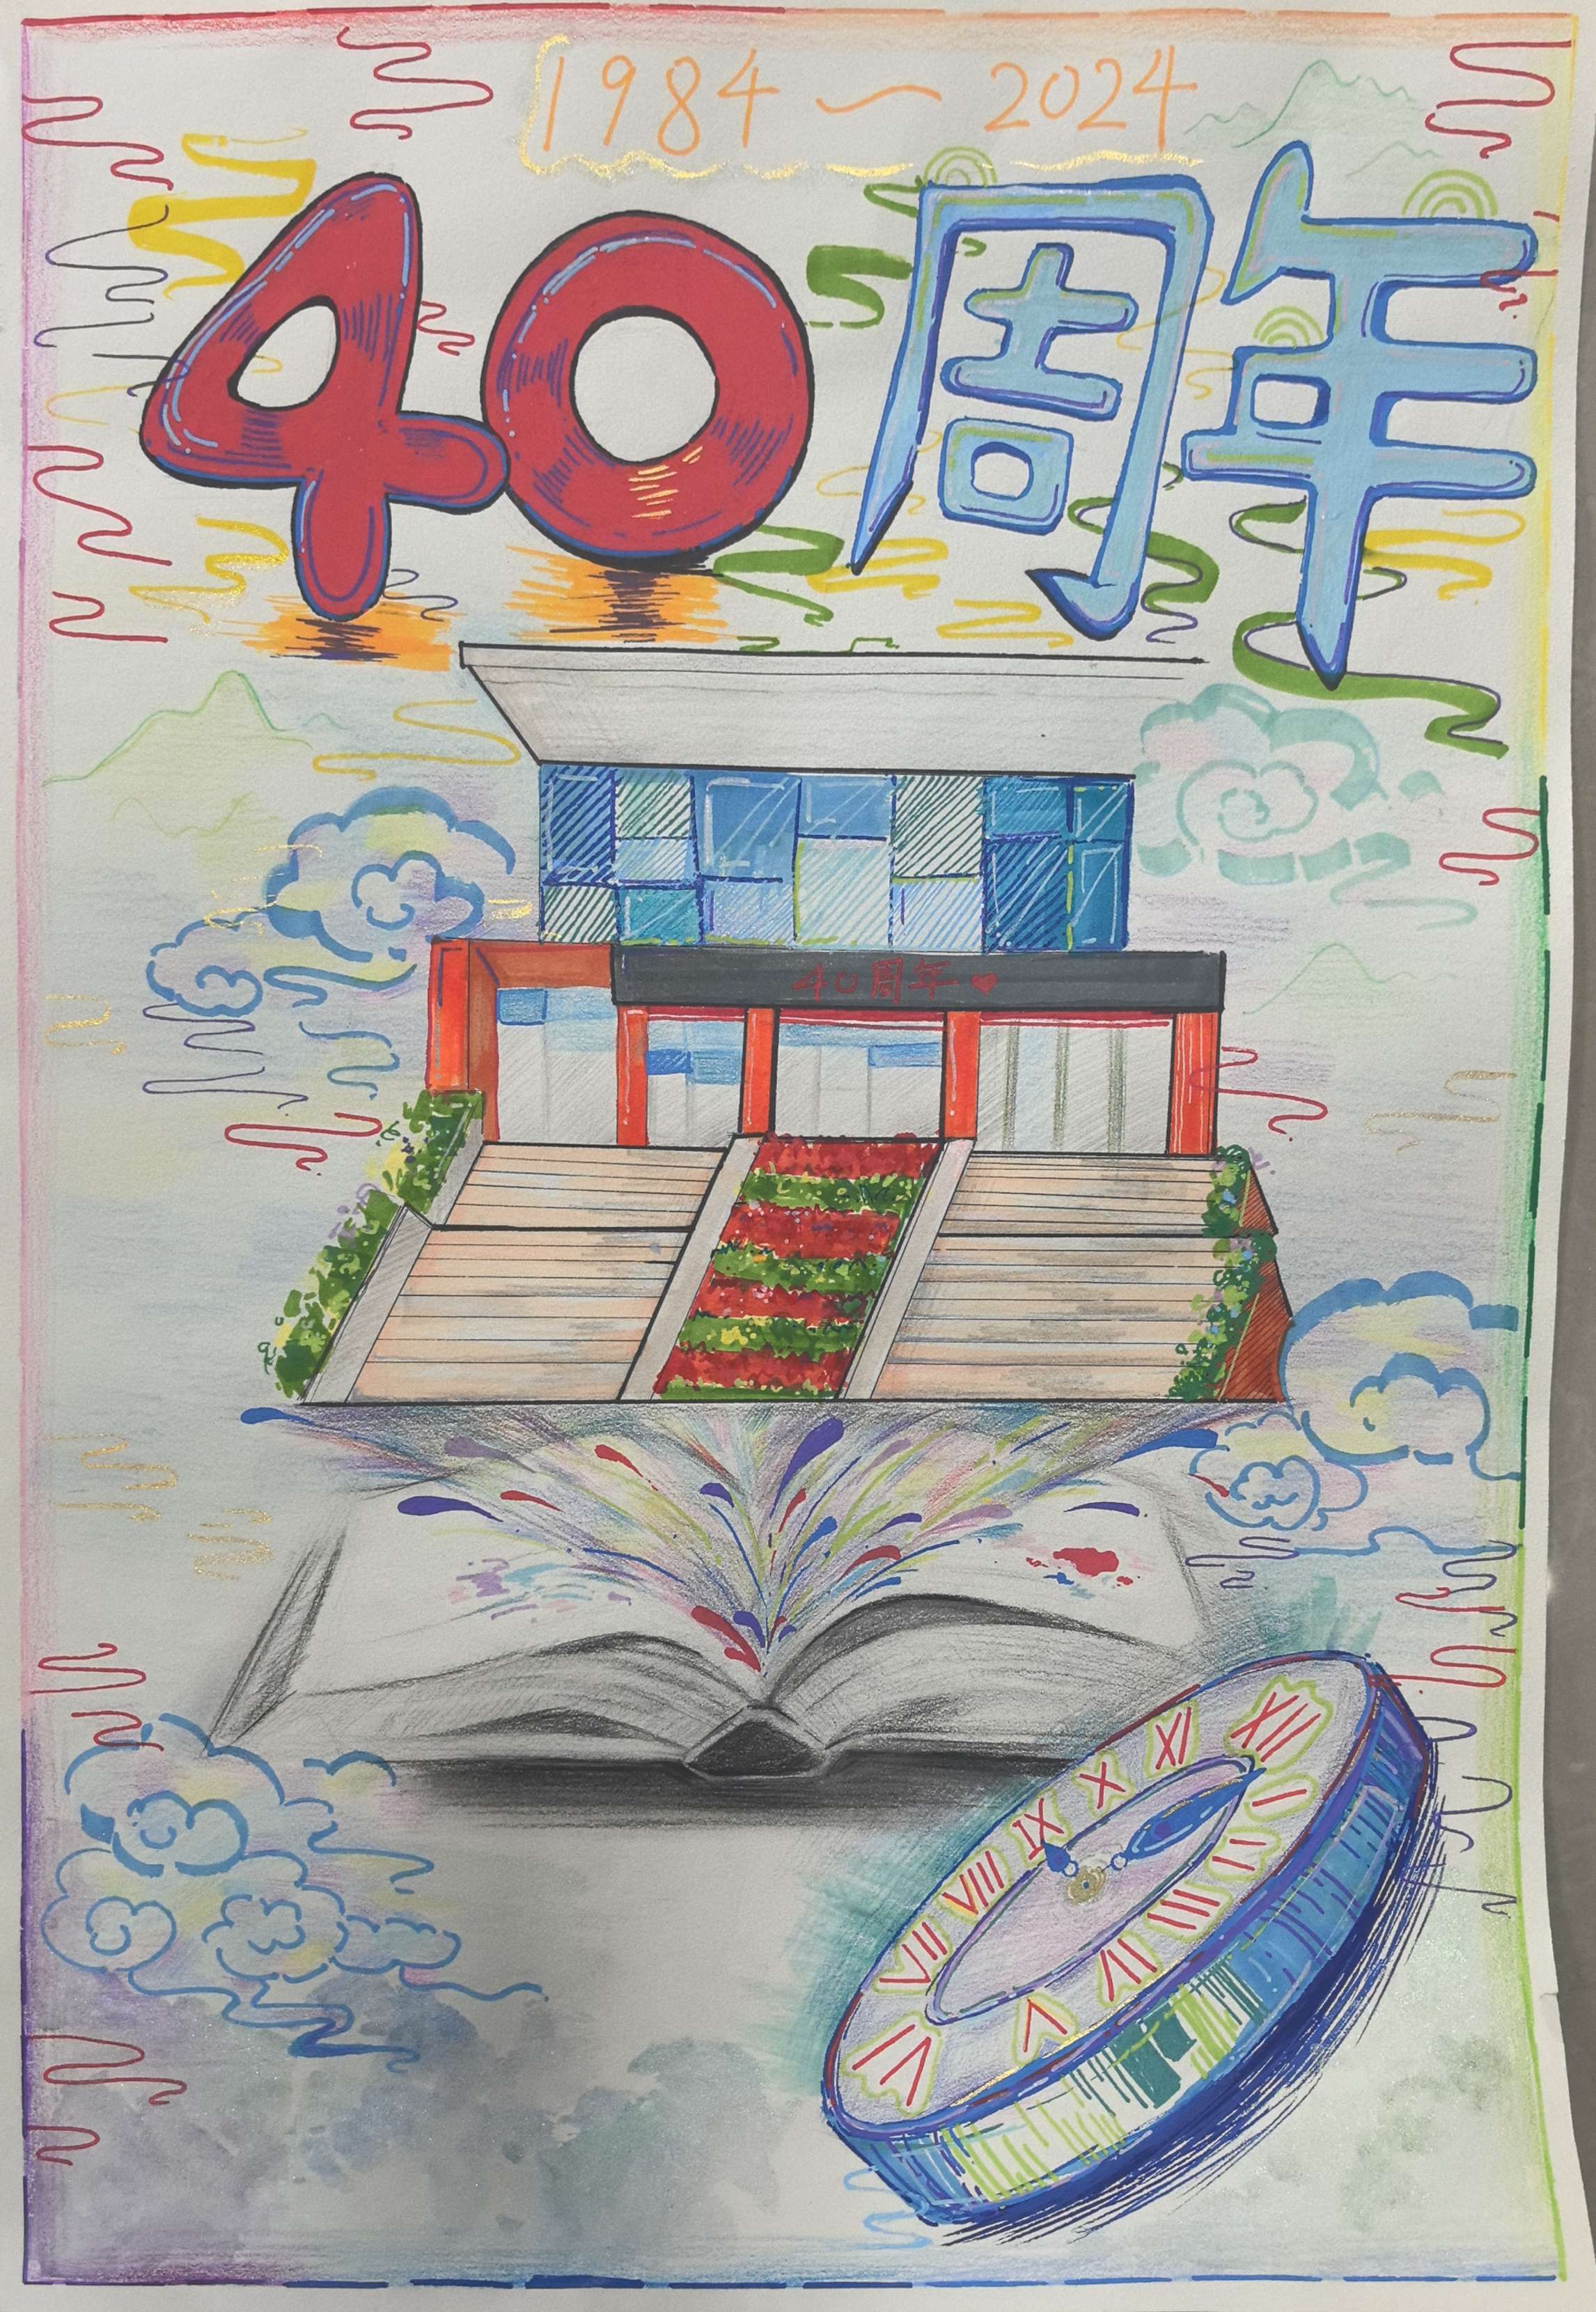 1984~2024
40周年
40周年♥
XII
I
II
III
IV
V
VI
VII
VIII
IX
X
XI